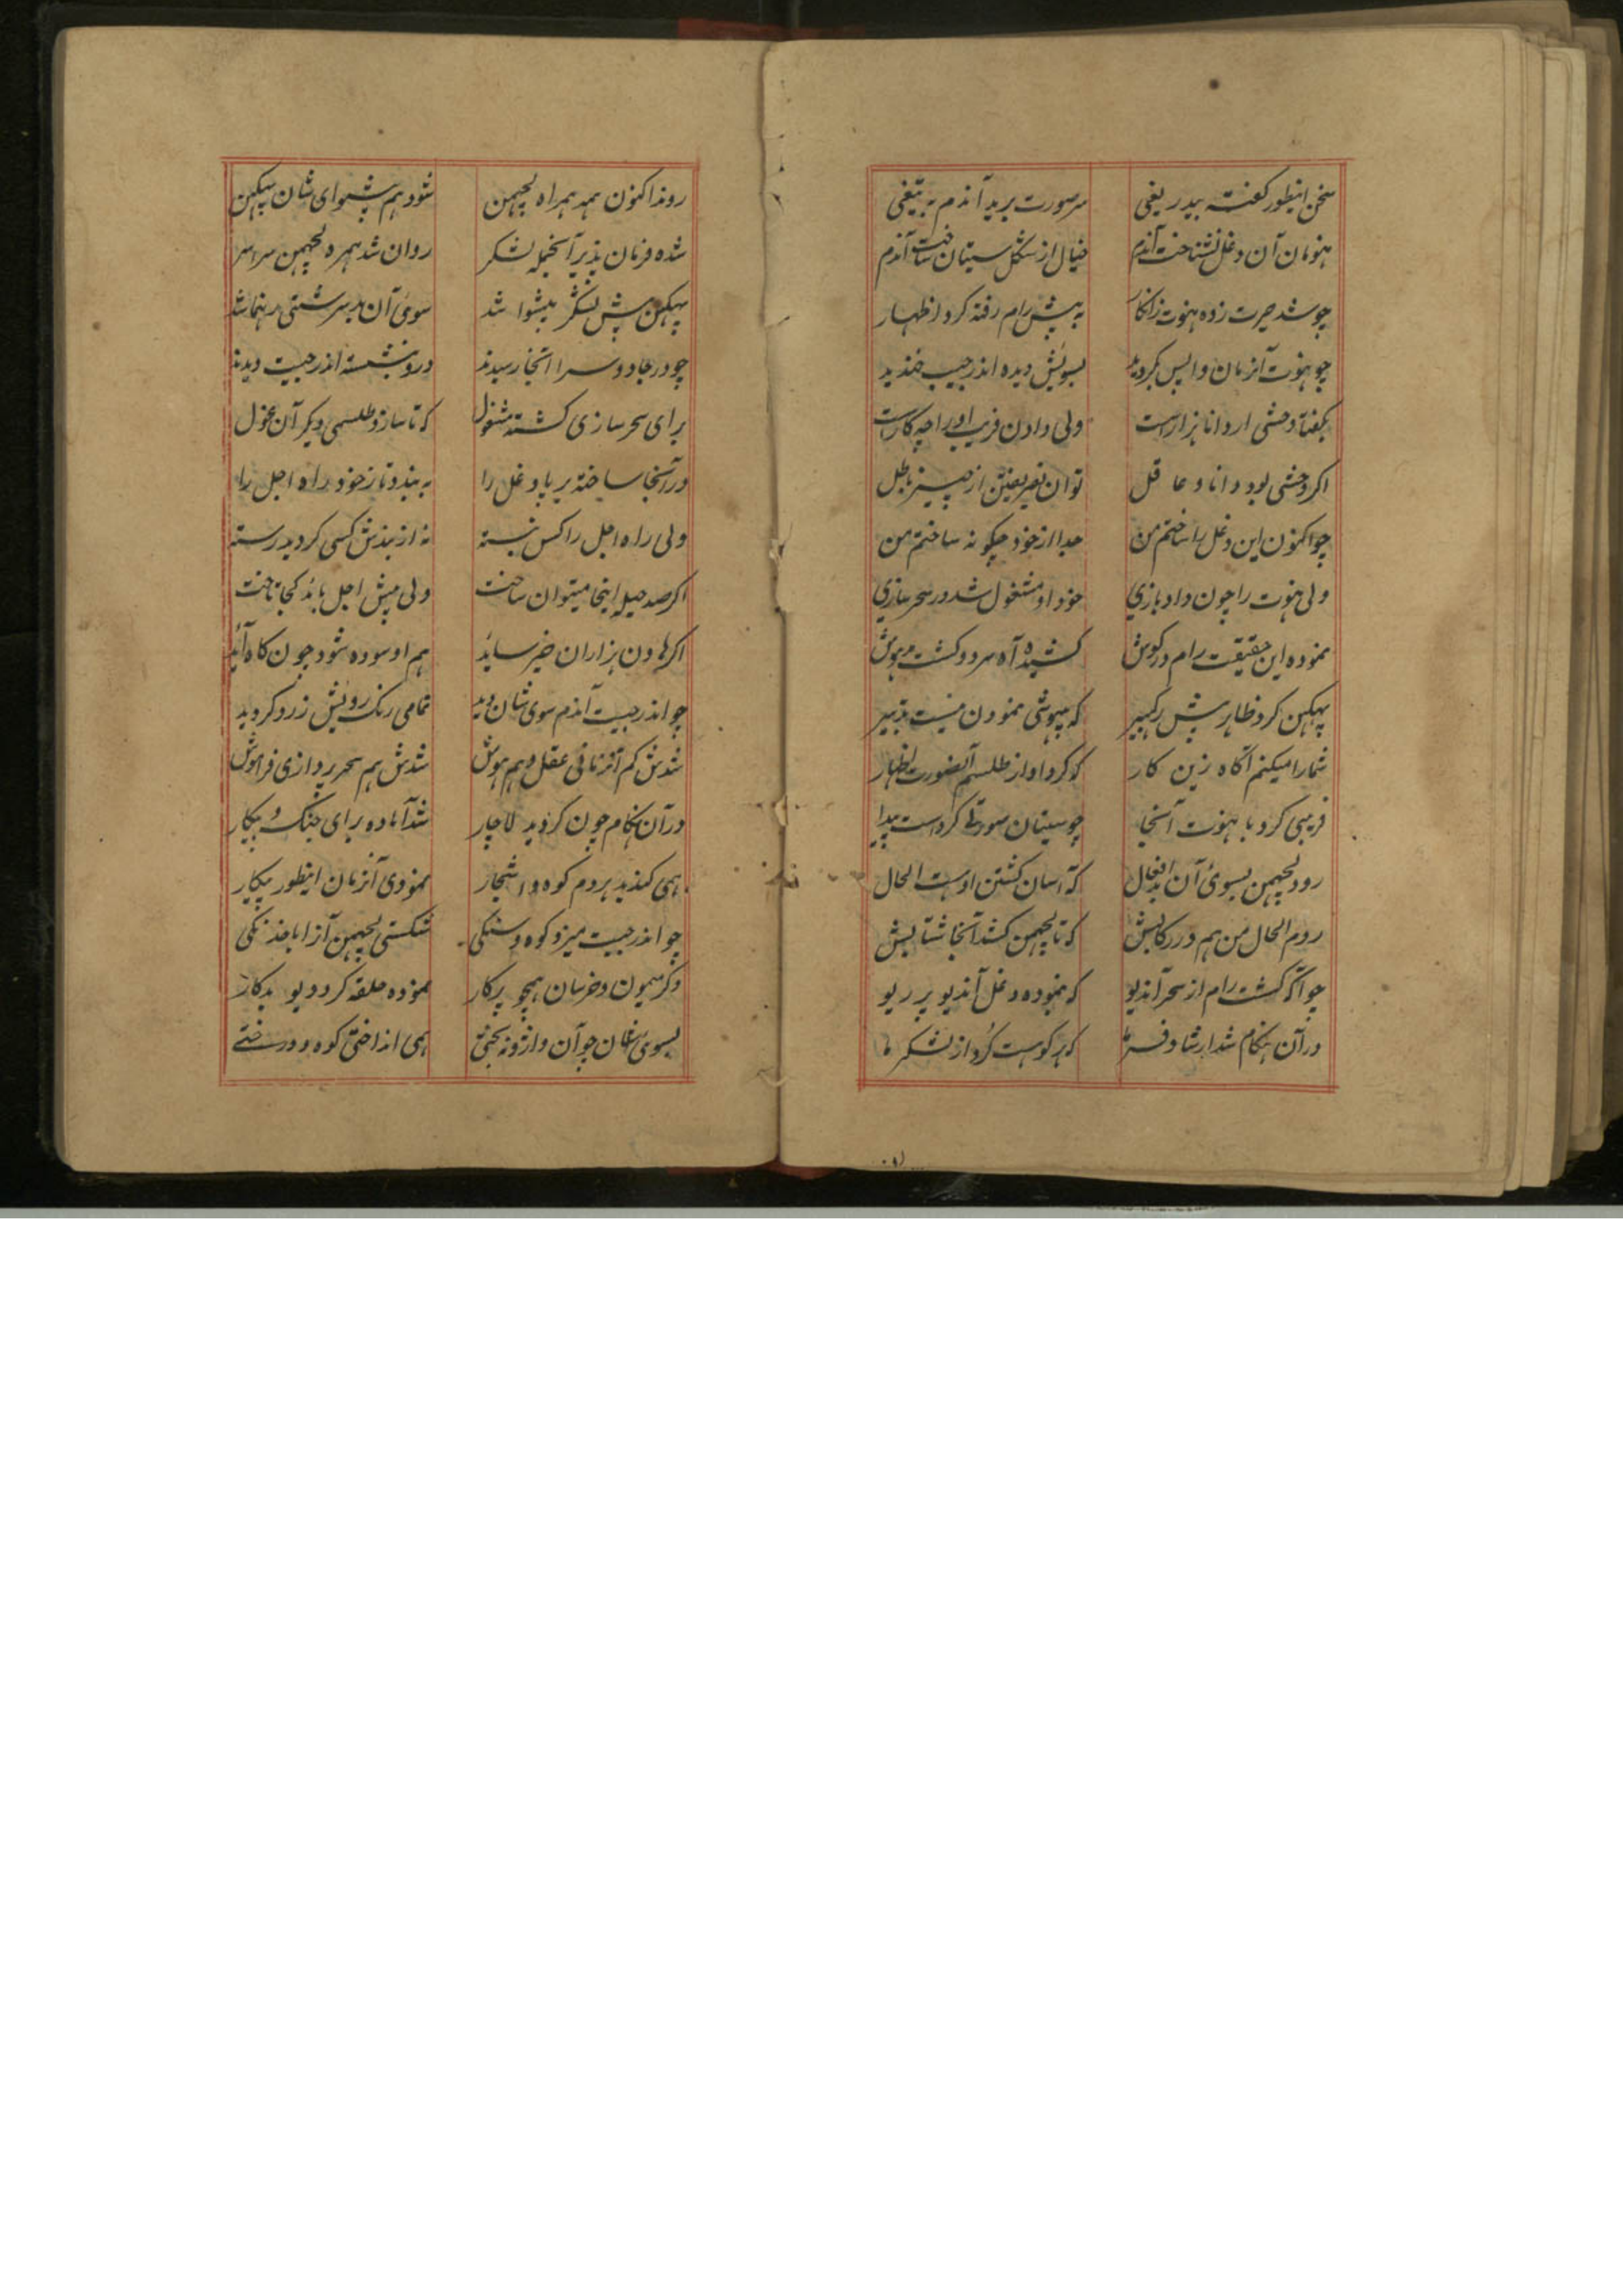 سخن اینطور گفته بیدریغی سر صورت برید آندم به تیغی
هنومان آن دغل نشناخت آندم خیال از شکل سیتا ساخت آندم
چو شد حیرت زده هنوت زانکار به پیش رام رفته کرد اظهار
چو هنوت آنزمان واپس بگردید بسویش دیده اندرجیت خندید
بگفتا وحشی ار دانا هزار است ولی دادن فریب او را چه کار است
اگر وحشی بود دانا و عاقل توان نفریفتن از چیز باطل
چو اکنون این دغل را ساختم من جدا از خود چگونه ساختم من
ولی هنوت را چون داد بازی خود او مشغول شد در سحرسازی
نموده این حقیقت رام در گوش کشیده آه سرد و گشت بیهوش
بهبیکن کرد ظاهر پیش رگبیر که بیهوشی نمودن نیست تدبیر
شما را میکنم آگاه زین کار که کرد او از طلسم آنصورت اظهار
فریبی کرد با هنوت آنجا چو سیتا صورتی کرد است پیدا
رود لچهمن بسوئ آن بدافعال که آسان کشتن اوست الحال
روم الحال من هم در رکابش که تا لچهمن کشد آنجا شتابش
چو آگه گشت رام از سحر آندیو که نموده دغل آندیو پر ریو
در آن هنگام شد ارشاد که هر کو هست گرد از لشکر ما
روند اکنون همه همراه لچهمن شود هم پیشوای شان بهبیکن
شده فرمان پذیر آنجمله لشکر روان شد همره لچهمن سراسر
بهبیکن پیش لشکر پیشوا شد سوئ آن بدسرشتی رهنما شد
چو در جادوسرا آنجا رسیدند درو بنشسته اندرجیت دیدند
برای سحرسازی گشته مشغول که تا سازد طلسمی دیگر آن غول
در آنجا ساخته برپا دغل را به بندد تا ز خود راه اجل را
ولی راه اجل را کس نبسته نه از بندش کسی گردید رسته
اگر صد حیله اینجا میتوان ساخت ولی پیش اجل باید کجا تاخت
اگر هاون هزاران خیز ساید هم او سوده شود چون گاه آید
چو اندرجیت آندم سوی شان دید تمامی رنگ رویش زرد گردید
شدش گم آنزمانی عقل و هم هوش شدش هم سحرپردازی فراموش
در آن هنگام چون گردید لاچار شد آماده برای جنگ و پیکار
همی کندید هر دم کوه و اشجار نمودی آنزمان اینطور پیکار
چو اندرجیت میزد کوه و سنگی شکستی لچهمن آنرا با خدنگی
دگر میمون و خرسان همچو پرکار نموده حلقه گرد دیو بدکار
بسوی شان چو آن واژونه بختی همی انداختی کوه و درختی